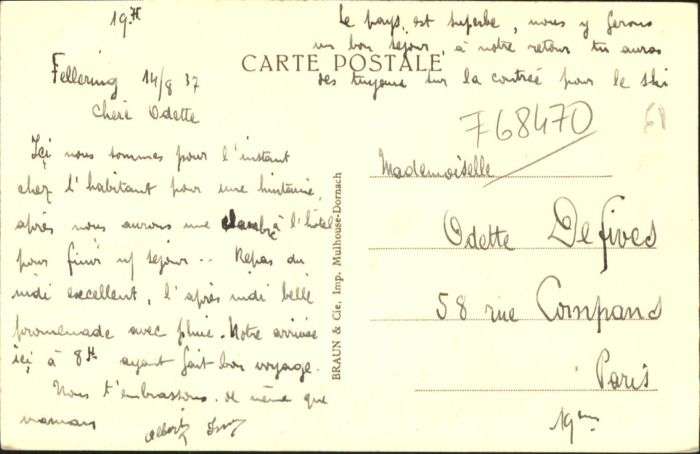 19 H
Le pays est superbe, nous y ferons
un bon séjour, à notre retour tu auras
des tuyaux sur la contreé pour le ski
CARTE POSTALE
Fellering 14/8 37
Cheré Odette
Içi nous sommes pour l'instant
chez l'habitant pour une huitaine,
après nous aurons une chambre à l'hôtel
pour finir séjour.. Repas du
midi excellent, l'après midi belle
promenade avec pluie. Notre arrivée
içi à 8H ayant fait bon voyage.
Nous t'embrassons de même que
maman
Albert
BRAUN & Cie, Imp. Mulhouse-Dornach
768470
68
Mademoiselle
Odette Defives
58 rue Compans
Paris
19ème